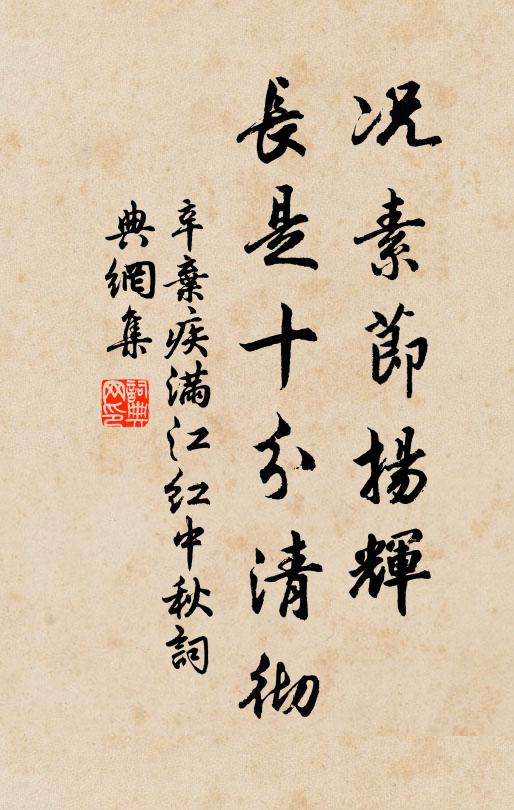 况素節揚輝
長是十分清彻
辛棄疾满江红中秋詞
典網集
詞典網印